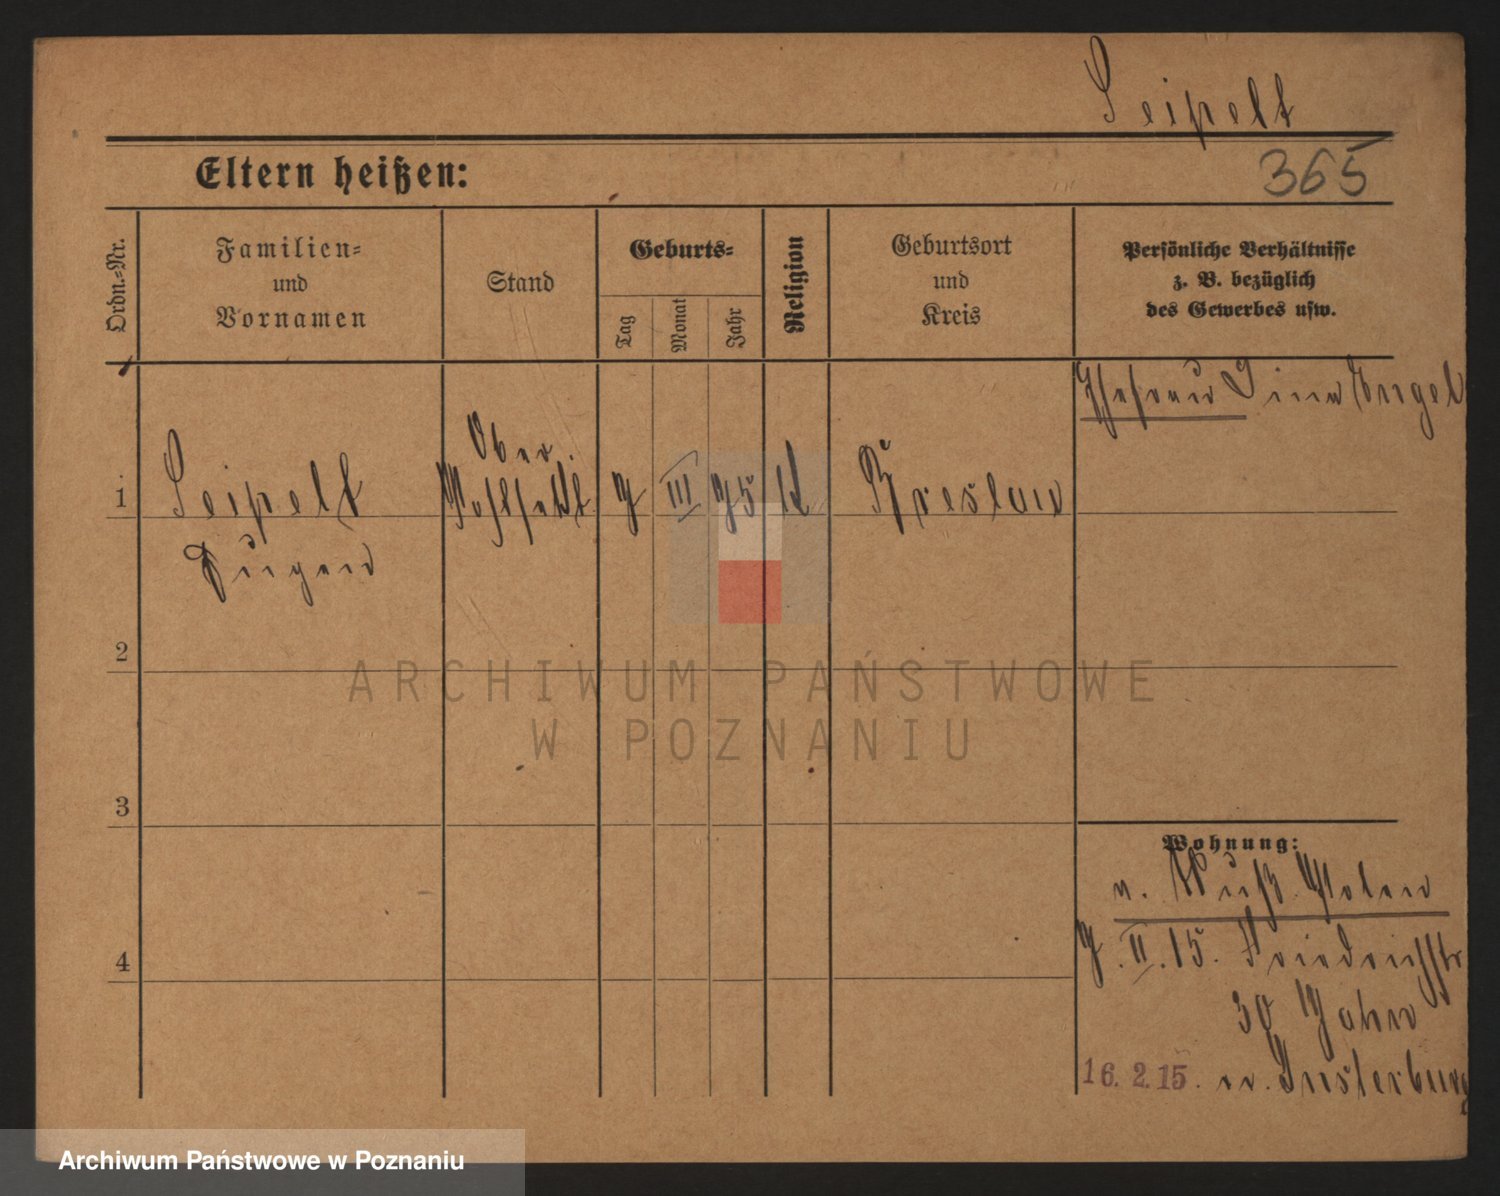 Seipelt
Eltern heißen:
365
Ordn.=Nr.
Familien=
und
Vornamen
Stand
Geburts=
Tag
Monat
Jahr
Religion
Geburtsort
und
Kreis
Persönliche Verhältnisse
z. B. bezüglich
des Gewerbes usw.
Ehefrau Engel
1
Seipelt
Eugen
Ober
III 75
Breslau
2
3
4
Wohnung:
v. Ruß. Polen
7. II. 15. Friedrichstr
30 Jahn
16. 2. 15. n. Insterburg
ARCHIWUM PAŃSTWOWE
W POZNANIU
Archiwum Państwowe w Poznaniu